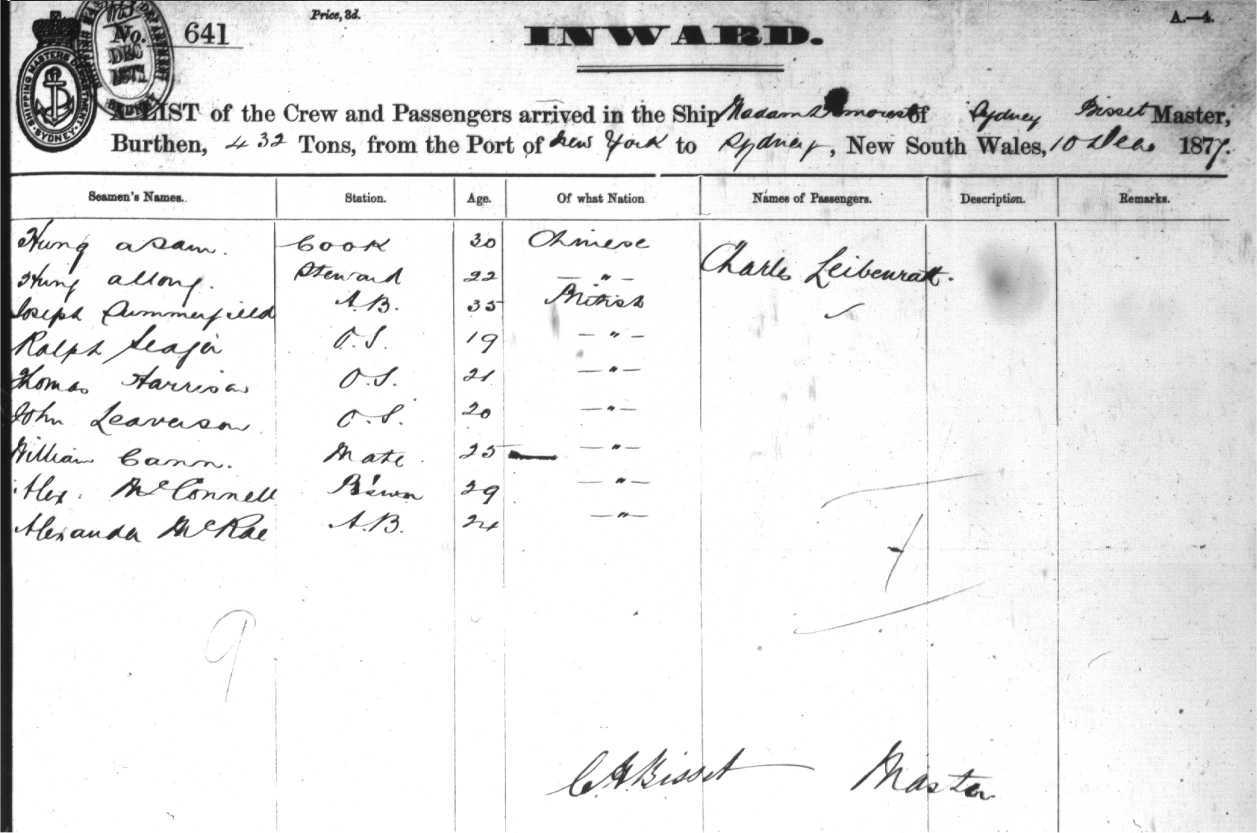 Price, 3d.
A.—4.
641
INWARD.
No.
DEC
1877
SYDNEY
SHIPPING MASTERS DEPARTMENT
SYDNEY
A LIST of the Crew and Passengers arrived in the Ship Madam Demorest of Sydney Bisset Master,
Burthen, 432 Tons, from the Port of New York to Sydney, New South Wales, 10 Dec 1877.
Seamen's Names. Station. Age. Of what Nation Names of Passengers. Description. Remarks.
Hung asam. Cook 30 Chinese
Charles Leibenratt.
Hung allong. Steward 22 — " —
Joseph Summerfield A.B. 35 British
Ralph Seager O.S. 19 — " —
Thomas Harrison O.S. 21 — " —
John Leaverson O.S. 20 — " —
William Cann. Mate 25 — " —
Alex. McConnell B'swn 29 — " —
Alexander McRae A.B. 24 — " —
9
1
C H Bisset Master